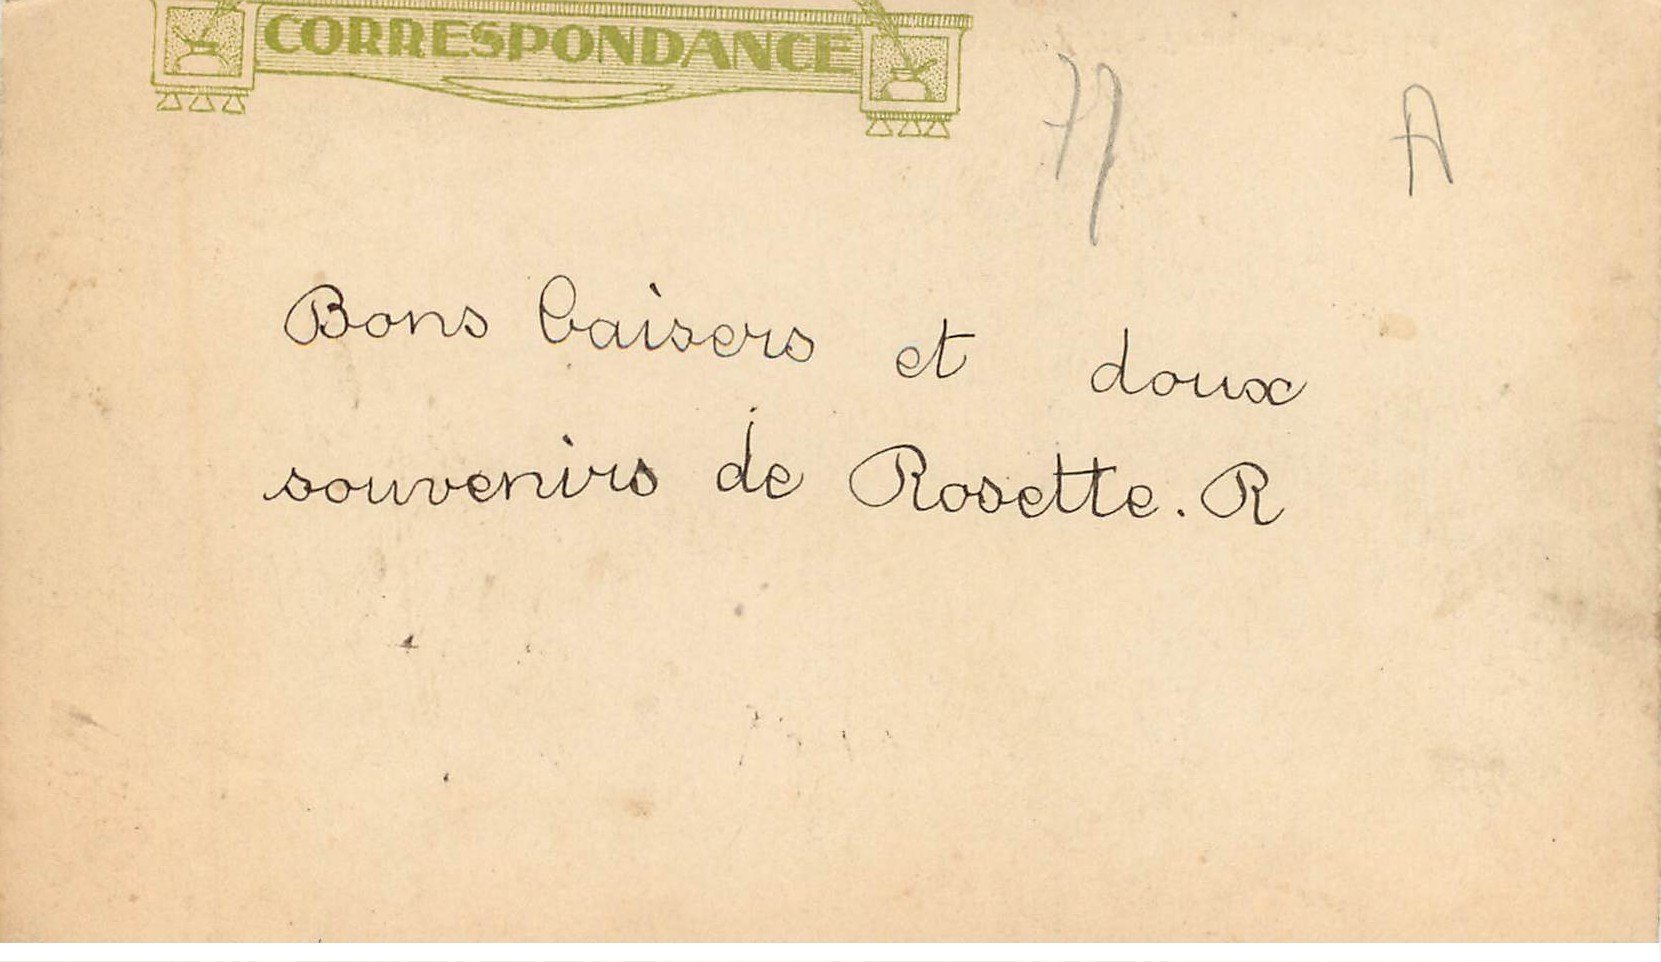 CORRESPONDANCE
77 A
Bons baisers et doux
souvenirs de Rosette. R